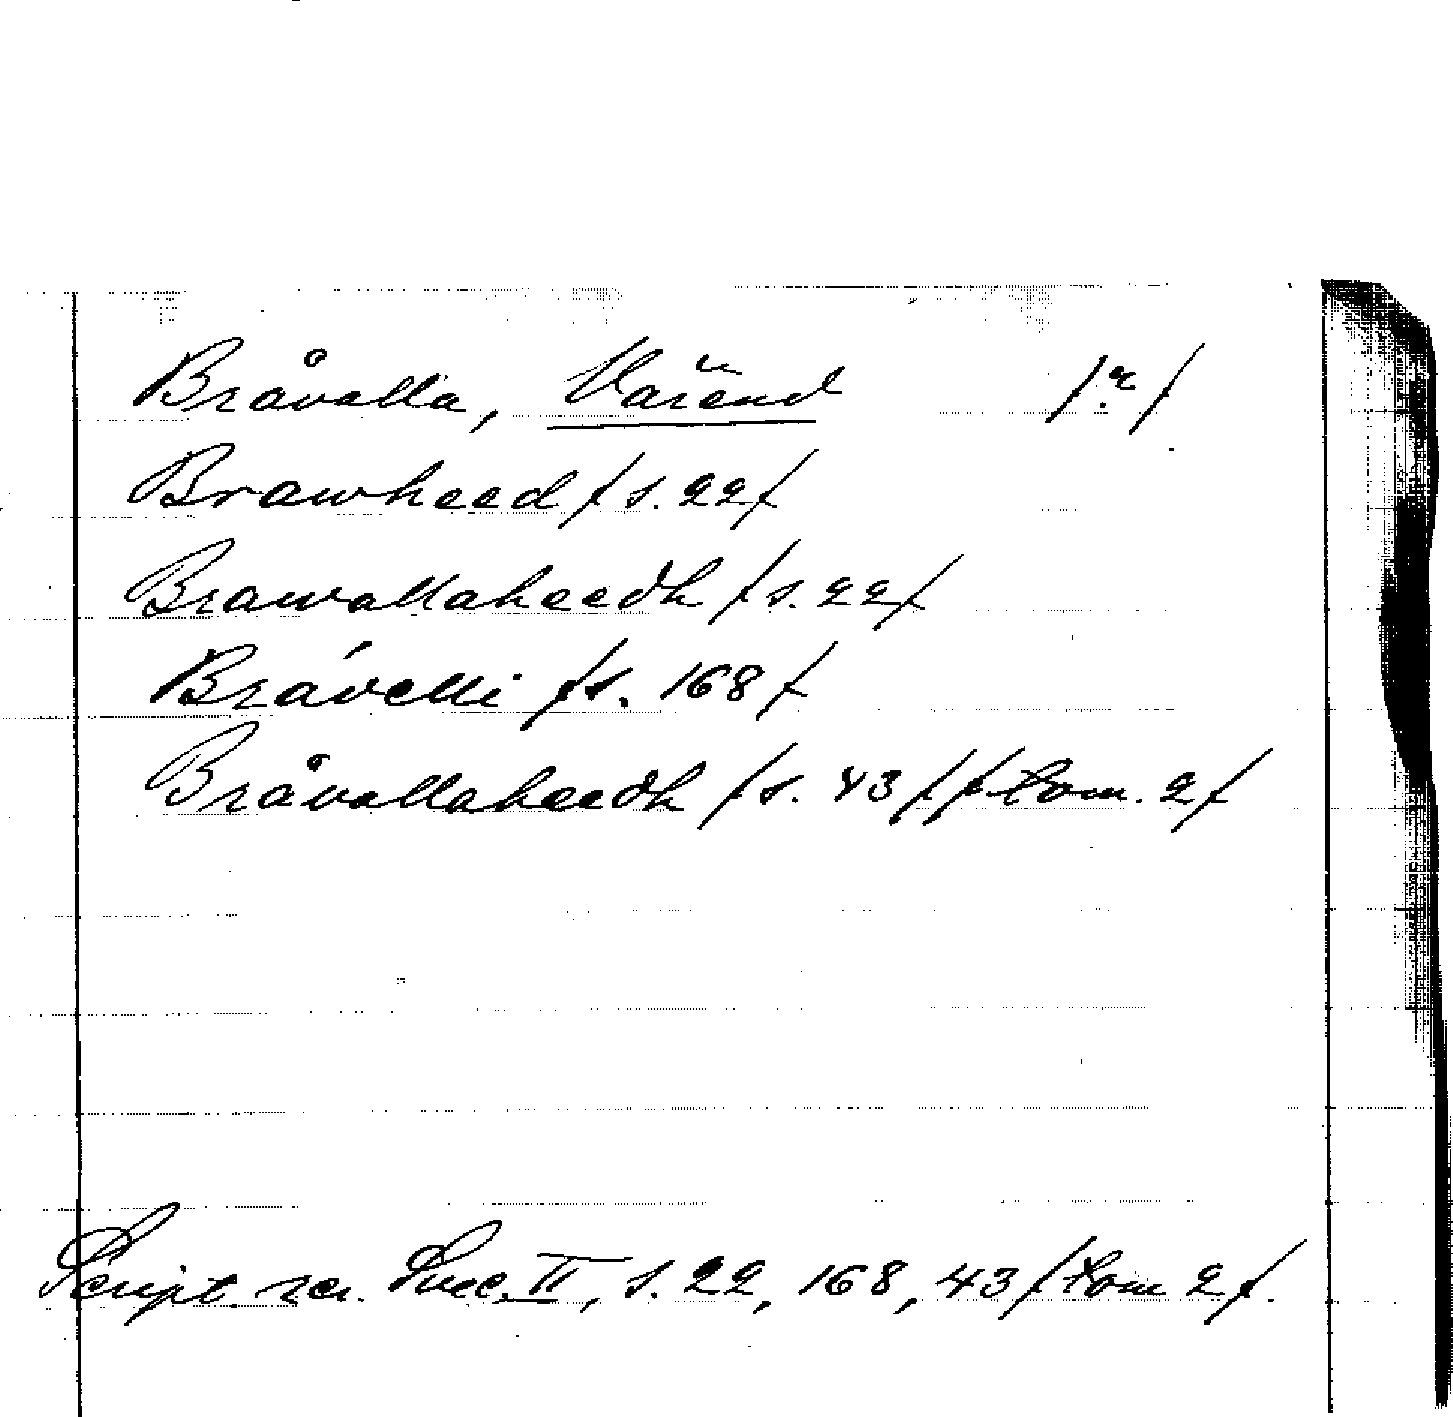 Bråvalla, Värend /?/
Brawheed /s. 22/
Brawallaheedh /s. 22/
Brávelli /s. 168/
Bråvallaheedh /s. 43/ /tom. 2/
Script. rer. Suec. II, s. 22, 168, 43 /tom 2/.